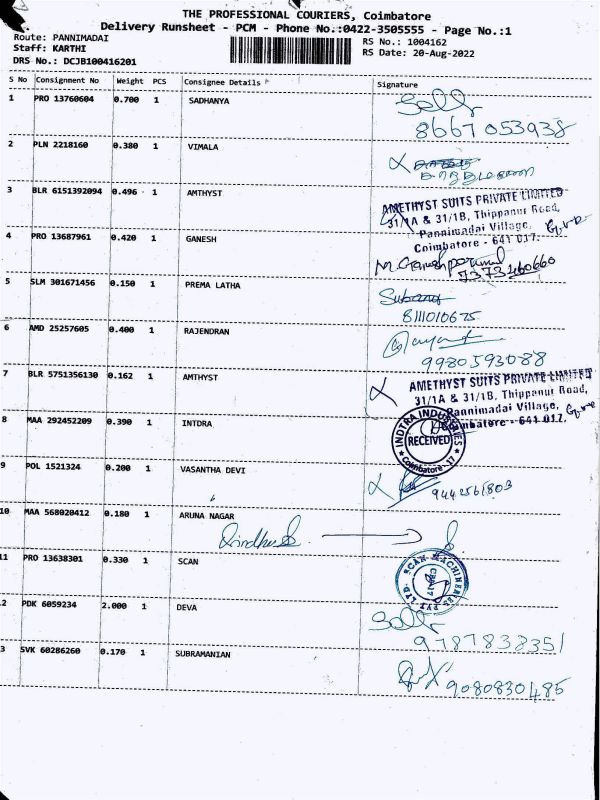 THE PROFESSIONAL COURIERS, Coimbatore
Delivery Runsheet - PCM - Phone No.:0422-3505555 - Page No.:1
Route: PANNIMADAI
RS No.: 1004162
Staff: KARTHI
RS Date: 20-Aug-2022
DRS No.: DCJB100416201
S No Consignment No Weight PCS Consignee Details Signature
1 PRO 13760604 0.700 1 SADHANYA
8667053938
2 PLN 2218160 0.380 1 VIMALA
3 BLR 6151392094 0.496 1 AMTHYST
AMETHYST SUITS PRIVATE LIMITED
31/1A & 31/1B, Thippanur Road,
Pannimadai Village,
Coimbatore - 641 017.
4 PRO 13687961 0.420 1 GANESH
7373460660
5 SLM 301671456 0.150 1 PREMA LATHA
8111010675
6 AMD 25257605 0.400 1 RAJENDRAN
9980593088
7 BLR 5751356130 0.162 1 AMTHYST
AMETHYST SUITS PRIVATE LIMITED
31/1A & 31/1B, Thippanur Road,
Pannimadai Village,
Coimbatore - 641 017.
8 MAA 292452209 0.390 1 INTDRA
INDTRA INDUSTRIES
RECEIVED
Coimbatore - 17
9 POL 1521324 0.200 1 VASANTHA DEVI
9442561803
10 MAA 568020412 0.180 1 ARUNA NAGAR
11 PRO 13638301 0.330 1 SCAN
SCAN MACHINERIES PVT LTD.
2 PDK 6059234 2.000 1 DEVA
9787838351
3 SVK 60286260 0.170 1 SUBRAMANIAN
9080830485